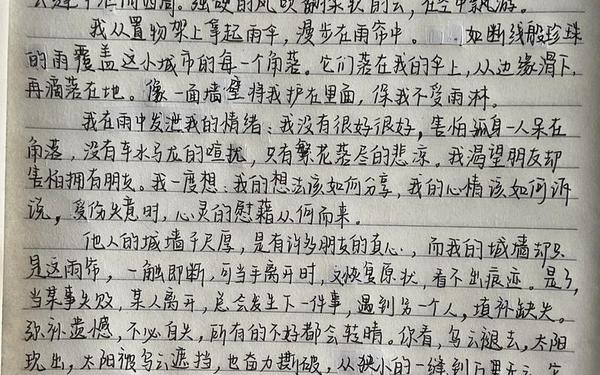 四周。强硬的风吹翻柔软的云，在空中飘游。
我从置物架上拿起雨伞，漫步在雨帘中。如断线般珍珠
的雨覆盖这小城市的每一个角落。它们落在我的伞上，从边缘滑下，
再滴落在地。像一面墙壁将我护在里面，保我不受雨淋。
我在雨中发泄我的情绪：我没有很好很好，害怕孤身一人呆在
角落，没有车水马龙的喧扰，只有繁花落尽的悲凉。我渴望朋友却
害怕拥有朋友。我一度想：我的想法该如何分享，我的心情该如何诉
说，受伤失意时，心灵的慰藉从何而来。
他人的城墙千尺厚，是有许多朋友的真心，而我的城墙却只
是这雨帘，一触即断，可当手离开时，又恢复原状，看不出痕迹。是了，
当某事失败，某人离开，总会发生下一件事，遇到另一个人，填补缺失。
弥补遗憾，不必自失，所有的不好都会转晴。你看，乌云褪去，太阳
现出，太阳被乌云遮挡，也奋力撕破，从狭小的一缝到万里无云，它